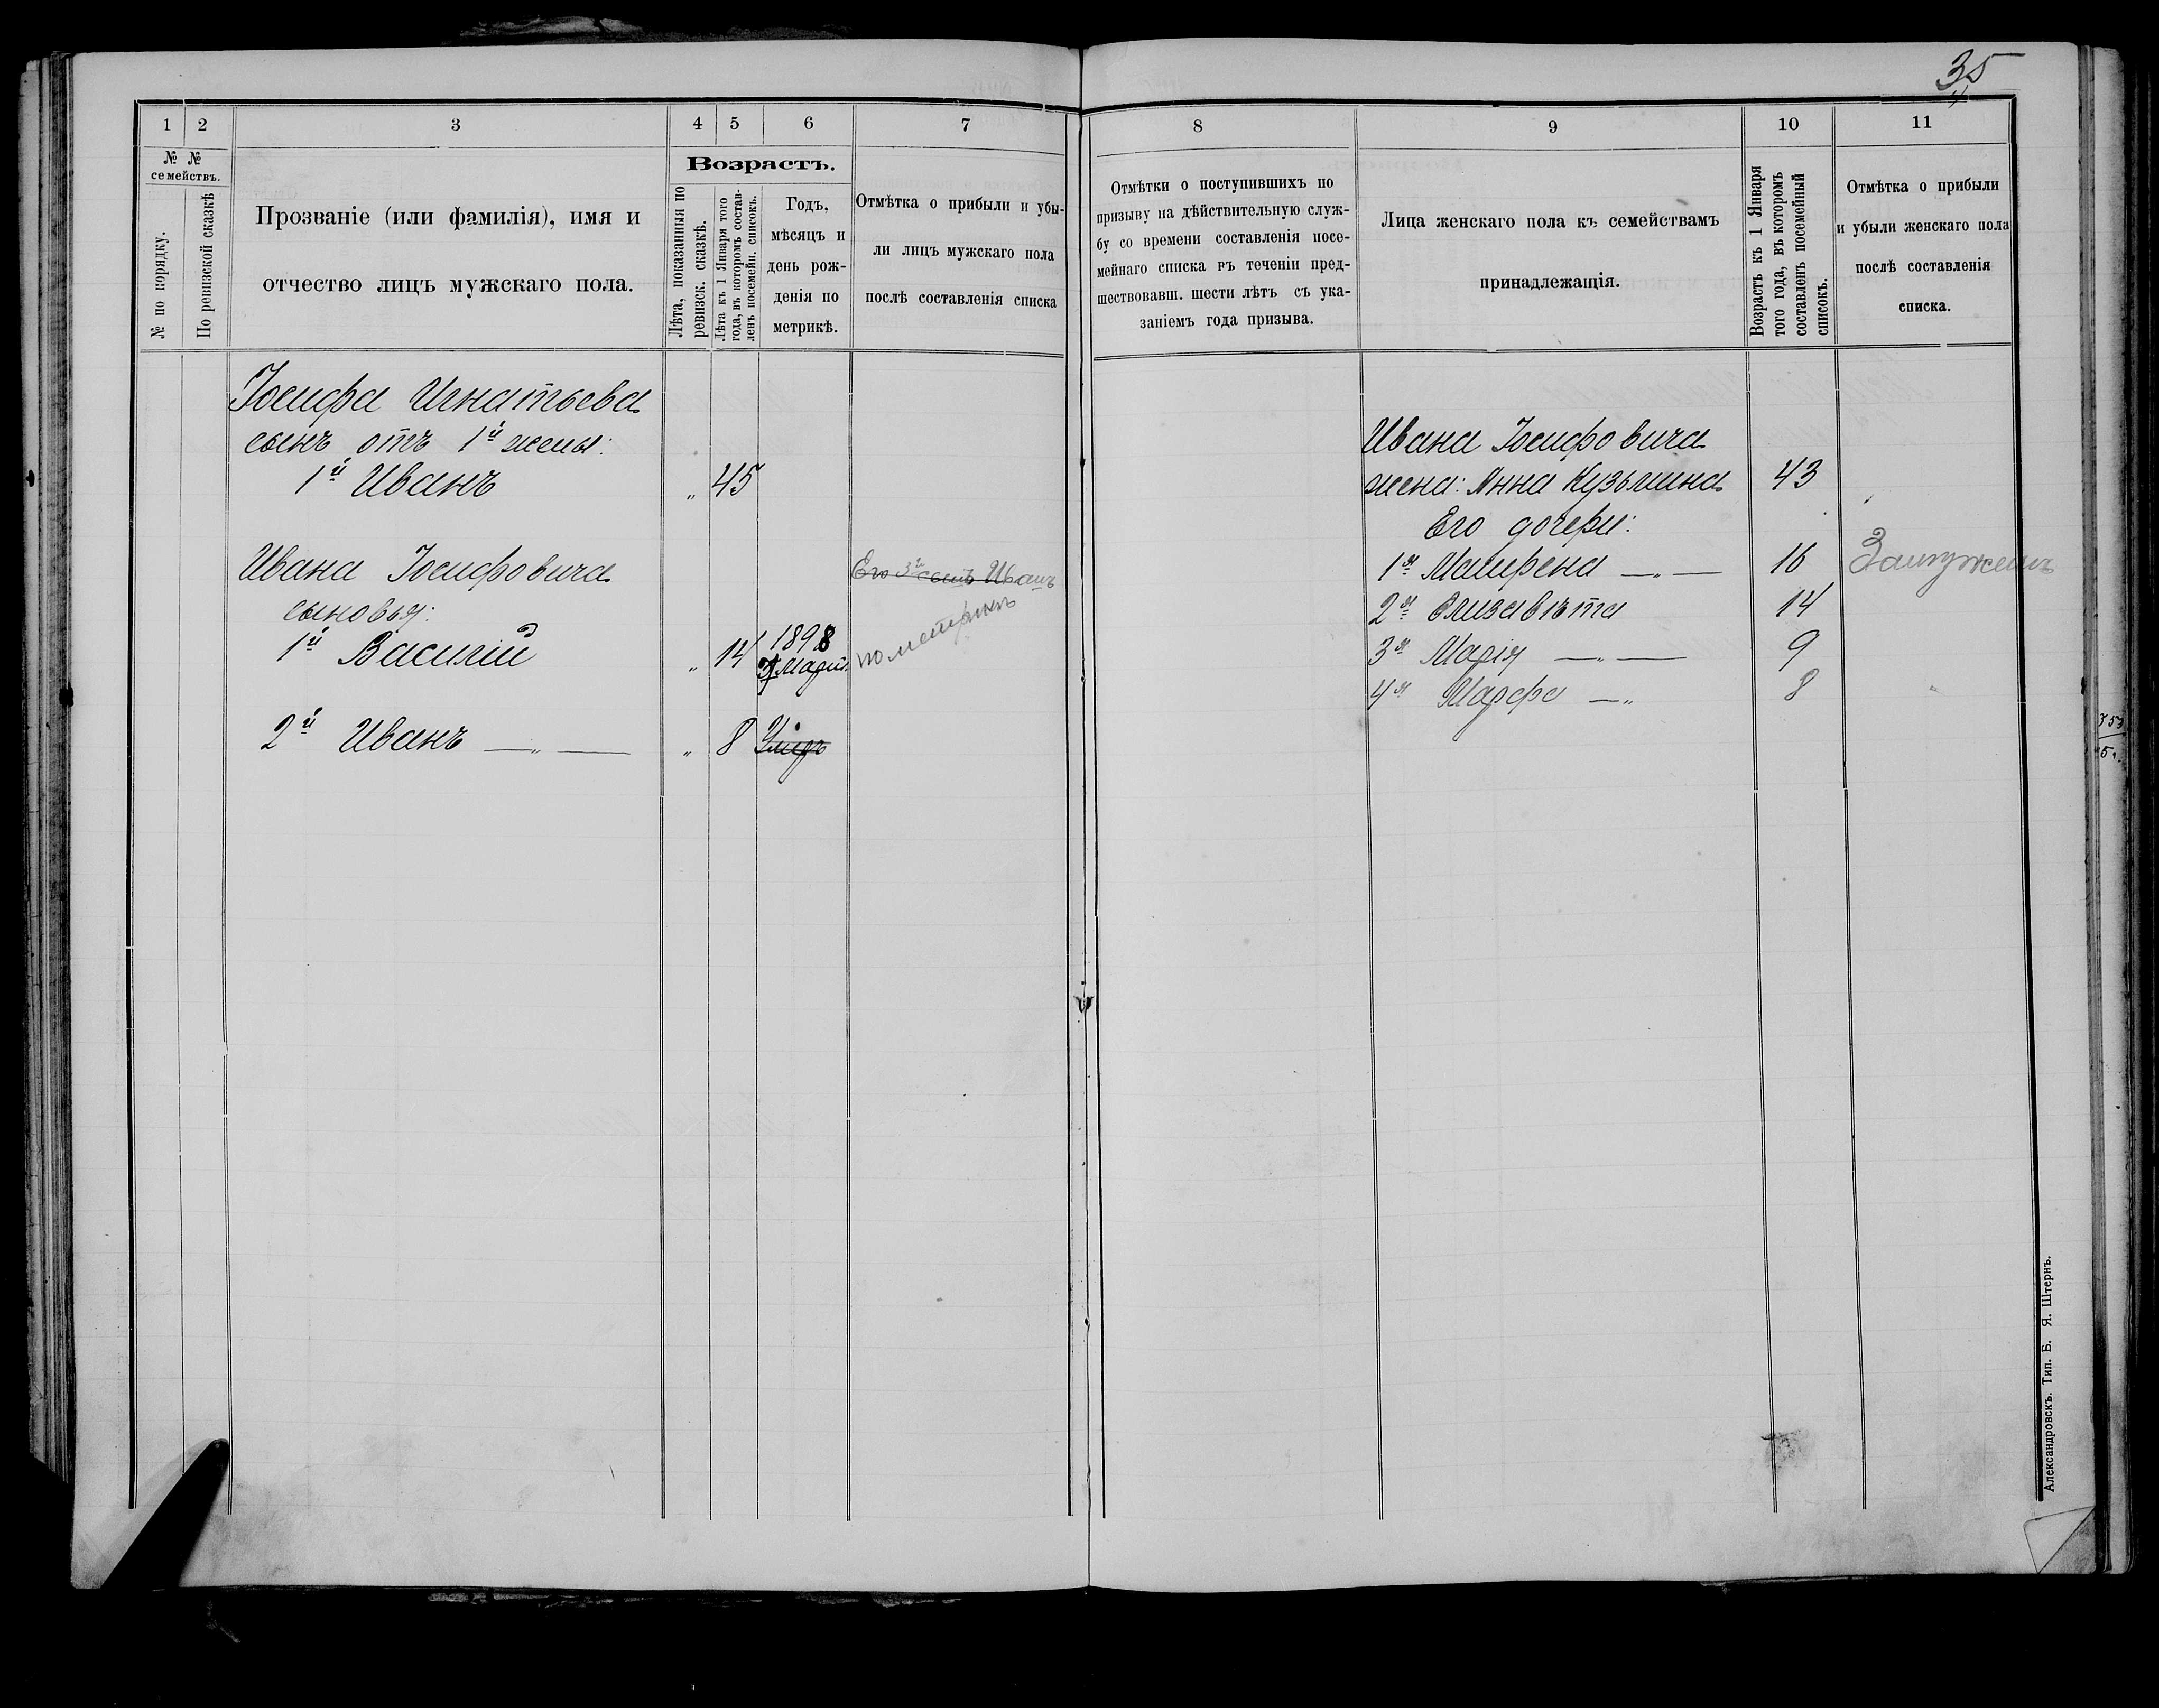 35
1 2 3 4 5 6 7
№ №
семействъ.
№ по порядку.
По ревизской сказкѣ
Прозваніе (или фамилія), имя и
отчество лицъ мужскаго пола.
Возрастъ.
Лѣта, показанныя по
ревизск. сказкѣ.
Лѣта къ 1 Января того
года, въ которомъ состав-
ленъ посемейн. списокъ.
Годъ,
мѣсяцъ и
день рож-
денія по
метрикѣ.
Отмѣтка о прибыли и убы-
ли лицъ мужскаго пола
послѣ составленія списка
Іосифа Игнатьева
сынъ отъ 1й жены:
1й Иванъ „ 45
Ивана Іосифовича
сыновья:
Его 3й сынъ Иванъ
1й Василій „ 14 1898
Март.
по метрикѣ
2й Иванъ —„— „ 8 Умеръ
8 9 10 11
Отмѣтки о поступившихъ по
призыву на дѣйствительную служ-
бу со времени составленія посе-
мейнаго списка въ теченіи пред-
шествовавш. шести лѣтъ съ ука-
заніемъ года призыва.
Лица женскаго пола къ семействамъ
принадлежащія.
Возрастъ къ 1 Января
того года, въ которомъ
составленъ посемейный
списокъ.
Отмѣтка о прибыли
и убыли женскаго пола
послѣ составленія
списка.
Ивана Іосифовича
жена: Анна Кузьмина 43
Его дочери:
1я Матрена —„— 16 Замужемъ
2я Елизавѣта 14
3я Марія —„— 9
4я Марфа —„ 8
Александровскъ. Тип. Б. Я. Штернъ.